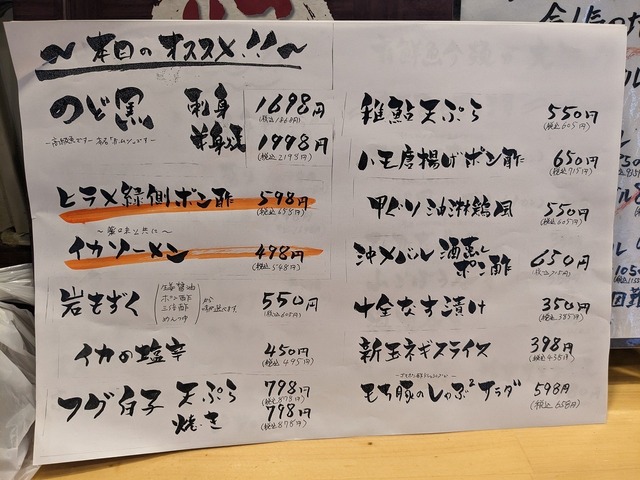 〜本日のオススメ!!〜
のど黒 刺身 1698円
(税込1868円)
1998円
(税込2198円)
ヒラメ縁側ポン酢 598円
(税込658円)
イカソーメン 498円
(税込548円)
岩もずく 生姜醤油
ポン酢
三杯酢
めんつゆ
から
550円
(税込605円)
イカの塩辛 450円
(税込495円)
フグ白子 天ぷら 798円
(税込878円)
焼き 798円
(税込878円)
稚鮎天ぷら 550円
(税込605円)
ハモ唐揚げポン酢 650円
(税込715円)
油淋鶏風 550円
(税込605円)
沖メバル酒蒸し
ポン酢
650円
(税込715円)
十全なす漬け 350円
(税込385円)
新玉ネギスライス 398円
(税込438円)
もち豚のしゃぶ²サラダ 598円
(税込658円)